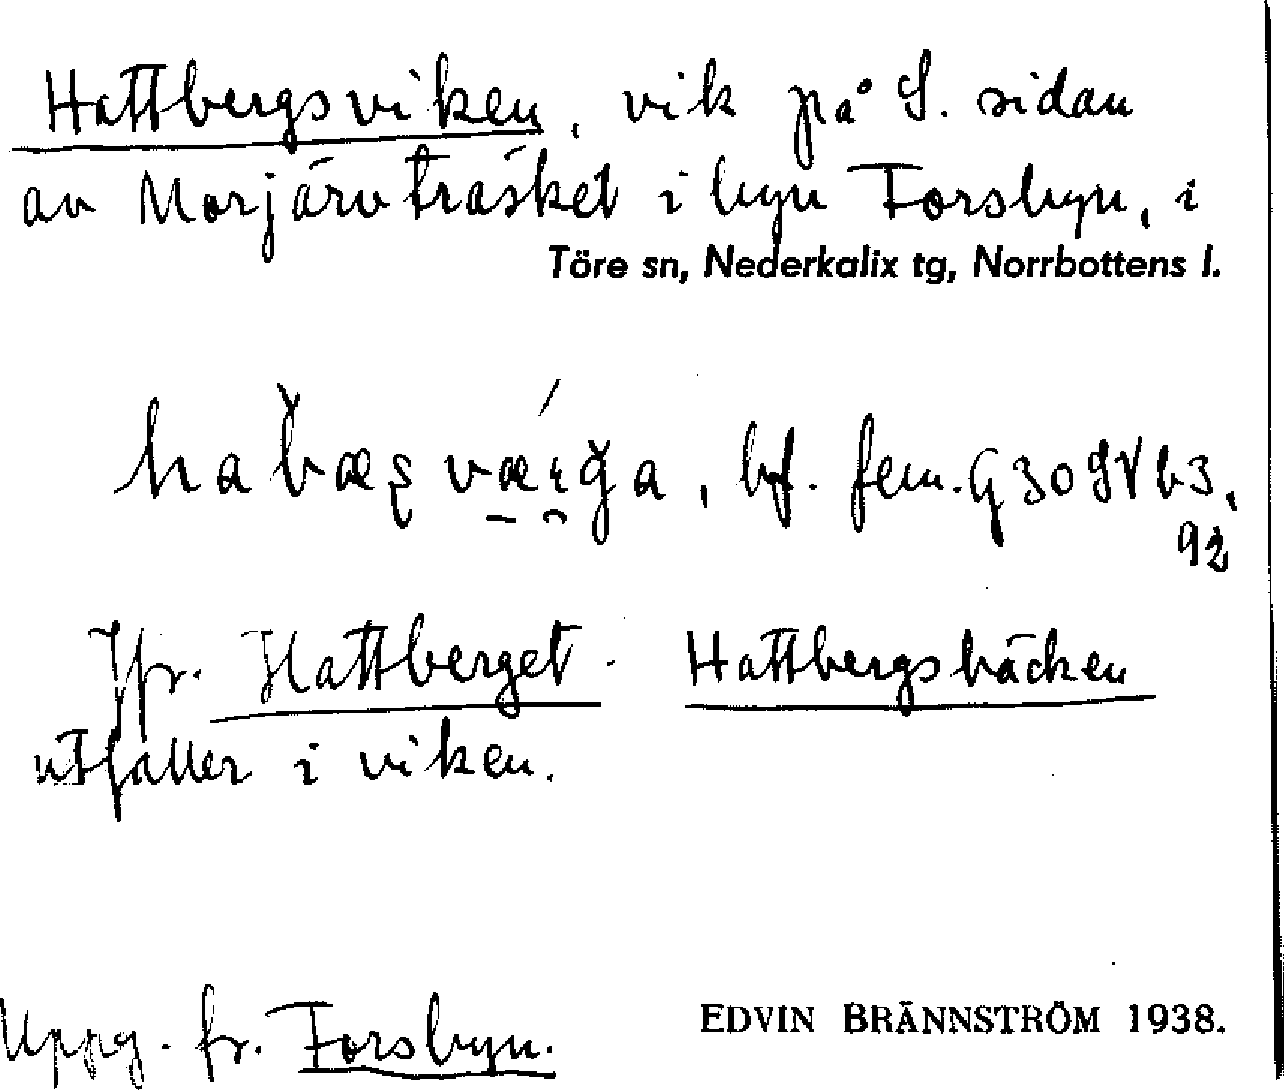 Hattbergsviken, vik på S. sidan
av Morjärvträsket i byn Forsbyn, i
Töre sn, Nederkalix tg, Norrbottens l.
bf. fem.
92
Jfr. Hattberget. Hattbergsbäcken
utfaller i viken.
Uppg. fr. Forsbyn.
EDVIN BRÄNNSTRÖM 1938.